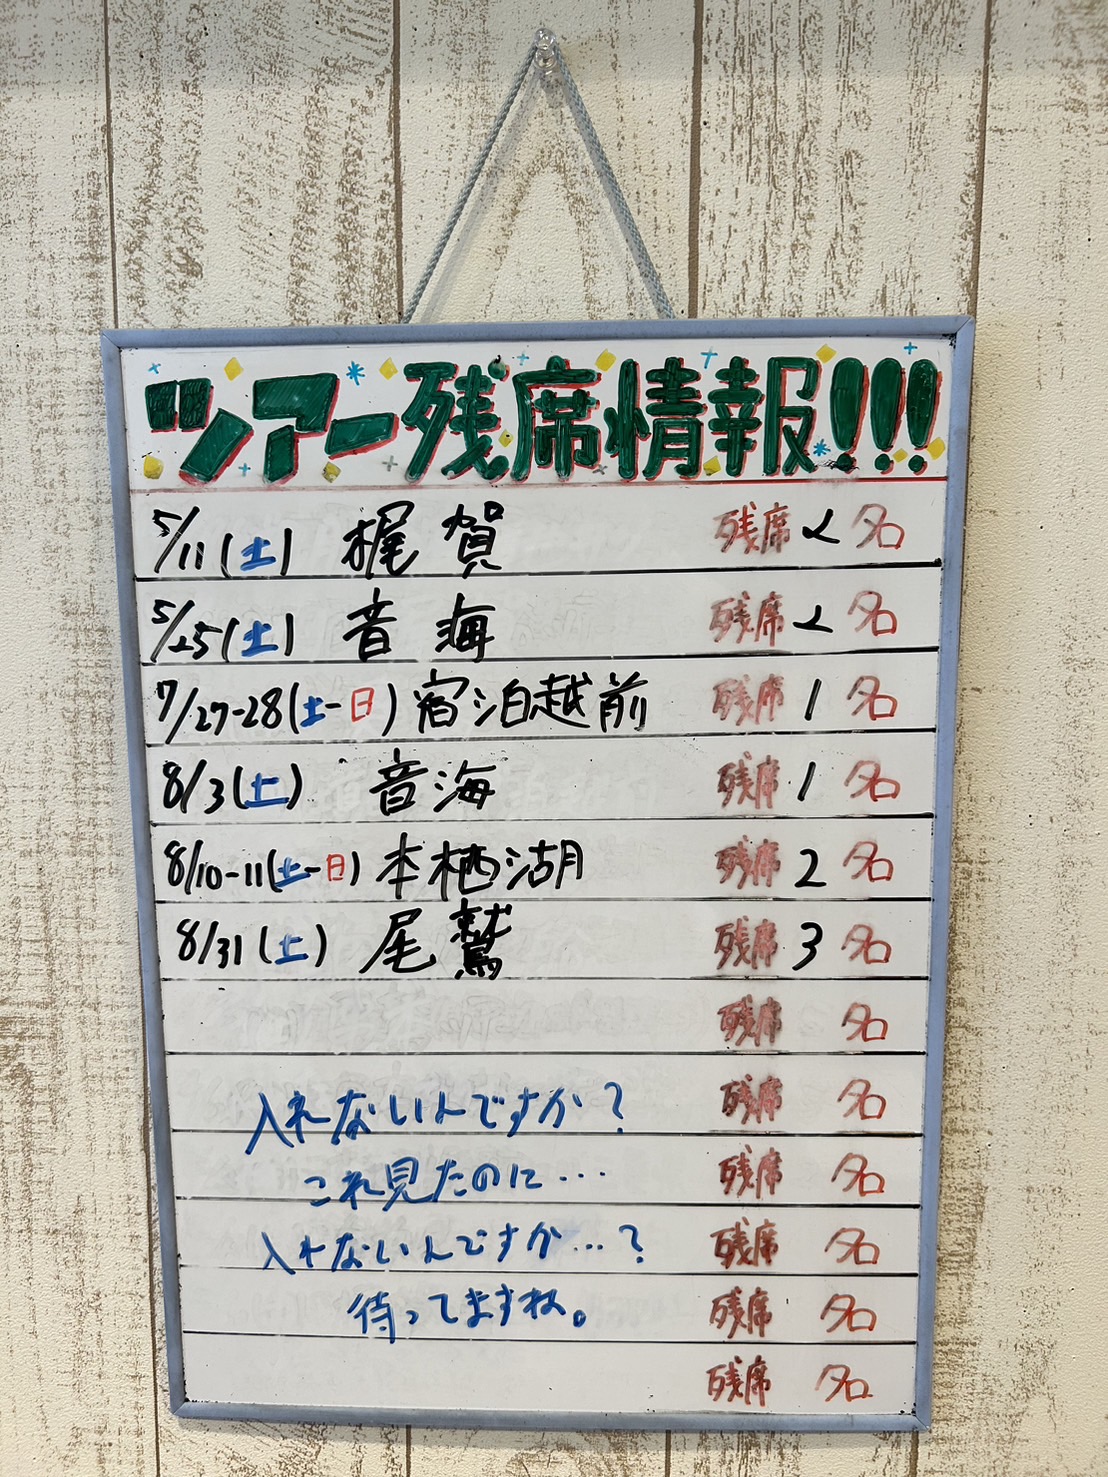 ツアー残席情報!!!
5/11(土) 梶賀 残席 2 名
5/25(土) 音海 残席 2 名
7/27-28(土-日) 宿泊越前 残席 1 名
8/3(土) 音海 残席 1 名
8/10-11(土-日) 本栖湖 残席 2 名
8/31(土) 尾鷲 残席 3 名
残席 名
入れないんですか? 残席 名
これ見たのに… 残席 名
入れないんですか…? 残席 名
待ってますね。 残席 名
残席 名